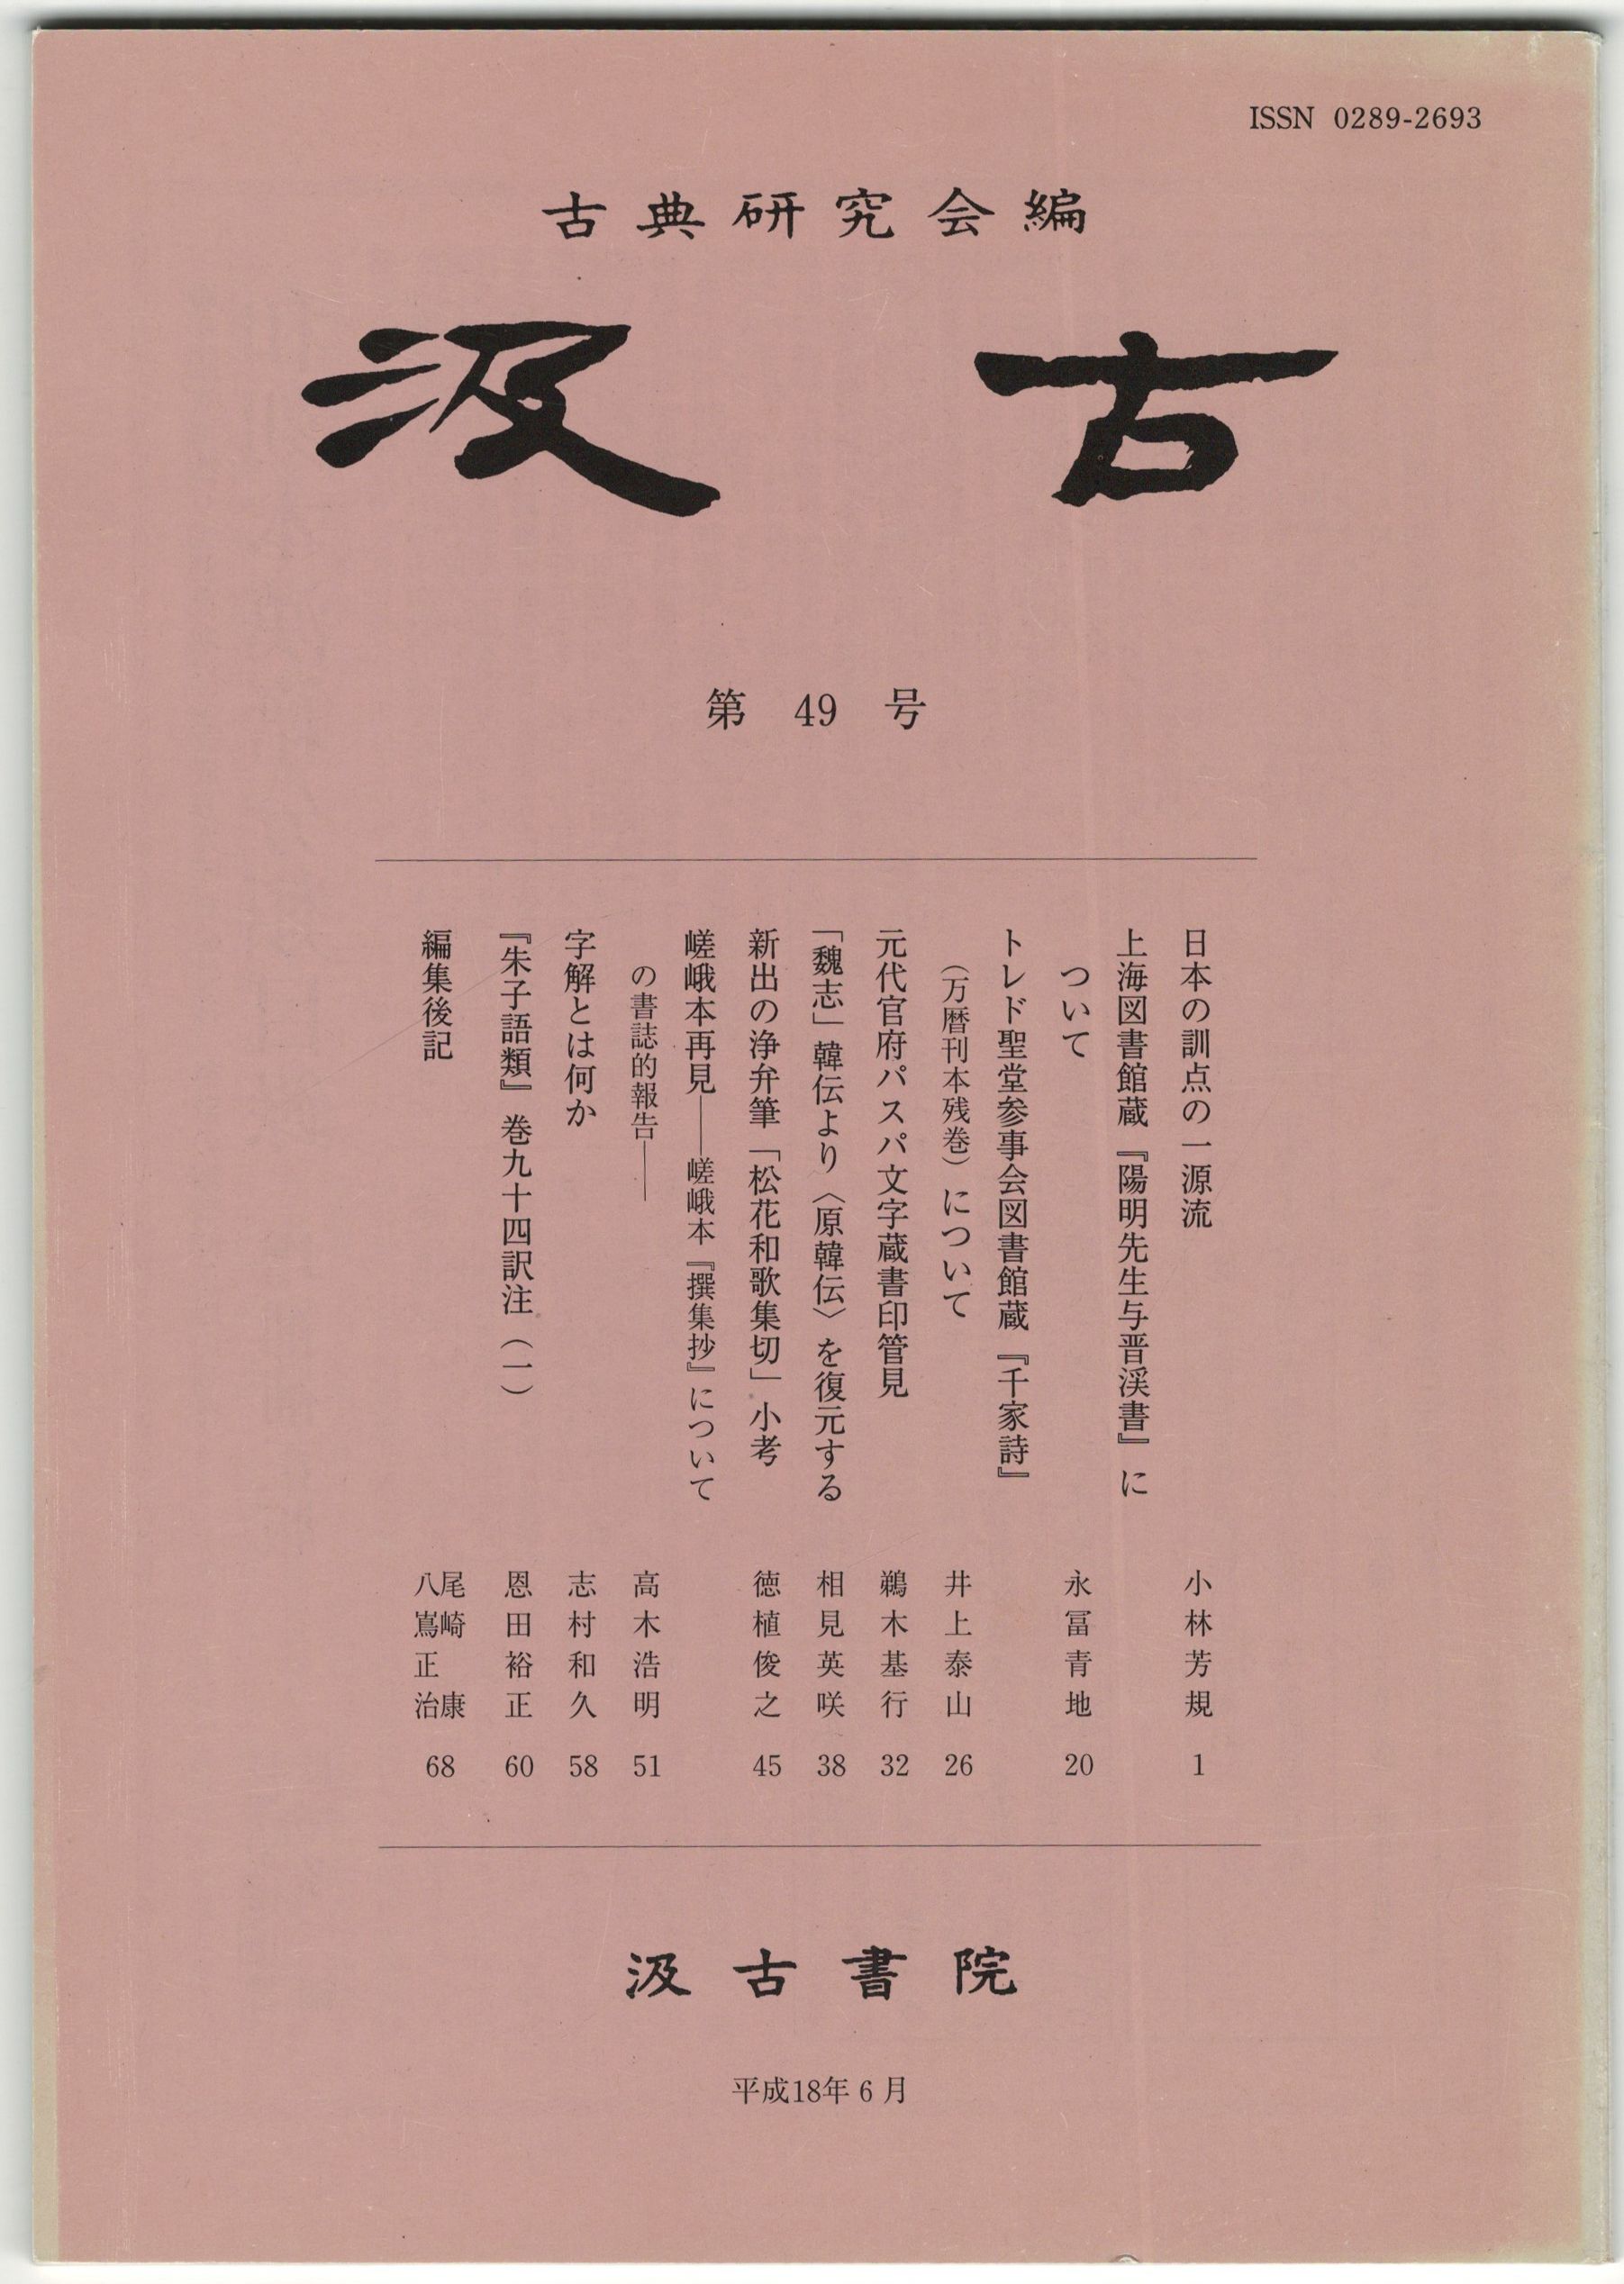 ISSN 0289-2693
古典研究会編
汲古
第 49 号
日本の訓点の一源流 小林芳規 1
上海図書館蔵『陽明先生与晋渓書』に
ついて 永冨青地 20
トレド聖堂参事会図書館蔵『千家詩』
（万暦刊本残巻）について 井上泰山 26
元代官府パスパ文字蔵書印管見 鵜木基行 32
「魏志」韓伝より〈原韓伝〉を復元する 相見英咲 38
新出の浄弁筆「松花和歌集切」小考 徳植俊之 45
嵯峨本再見――嵯峨本『撰集抄』について
の書誌的報告―― 高木浩明 51
字解とは何か 志村和久 58
『朱子語類』巻九十四訳注（一） 恩田裕正 60
編集後記 尾崎康 八嶌正治 68
汲古書院
平成18年6月